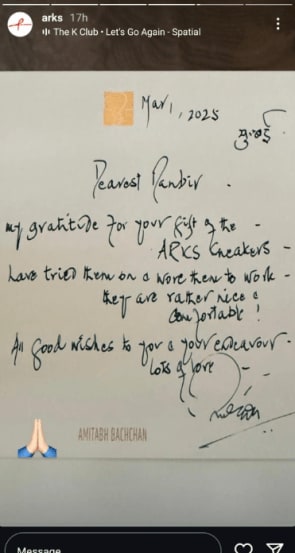 arks 17h
The K Club • Let's Go Again - Spatial
Mar 1, 2025
मुंबई
Dearest Ranbir -
my gratitude for your gift of the -
ARKS Sneakers -
have tried them on & wore them to work -
they are rather nice &
comfortable !
All good wishes to you & your endeavour -
Lots of love
AMITABH BACHCHAN
Message